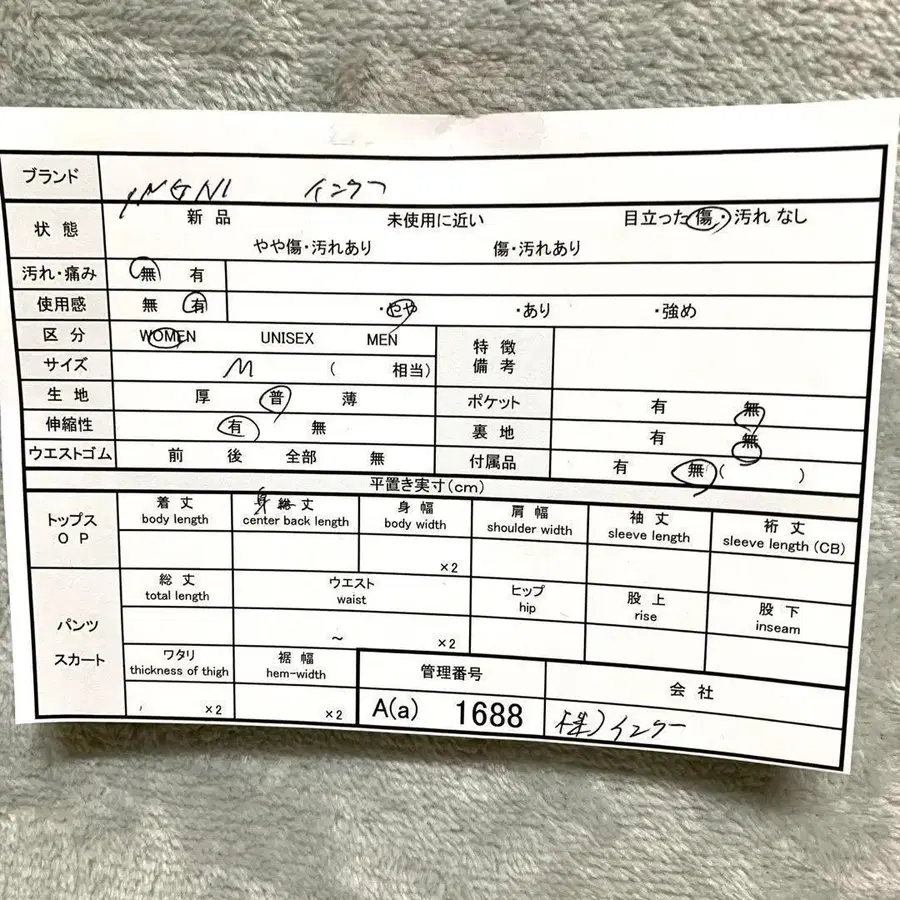 ブランド INGNI イング
状態 新品 未使用に近い 目立った傷・汚れ なし
やや傷・汚れあり 傷・汚れあり
汚れ・痛み 無 有
使用感 無 有 ・やや ・あり ・強め
区分 WOMEN UNISEX MEN 特徴備考
サイズ M ( 相当)
生地 厚 普 薄 ポケット 有 無
伸縮性 有 無 裏地 有 無
ウエストゴム 前 後 全部 無 付属品 有 無 ( )
平置き実寸(cm)
トップス OP 着丈 身総丈 身幅 肩幅 袖丈 裄丈
body length center back length body width shoulder width sleeve length sleeve length (CB)
×2
パンツ スカート 総丈 ウエスト ヒップ 股上 股下
total length waist hip rise inseam
～ ×2
ワタリ 裾幅 管理番号 会社
thickness of thigh hem-width
×2 ×2 A(a) 1688 (株)イング